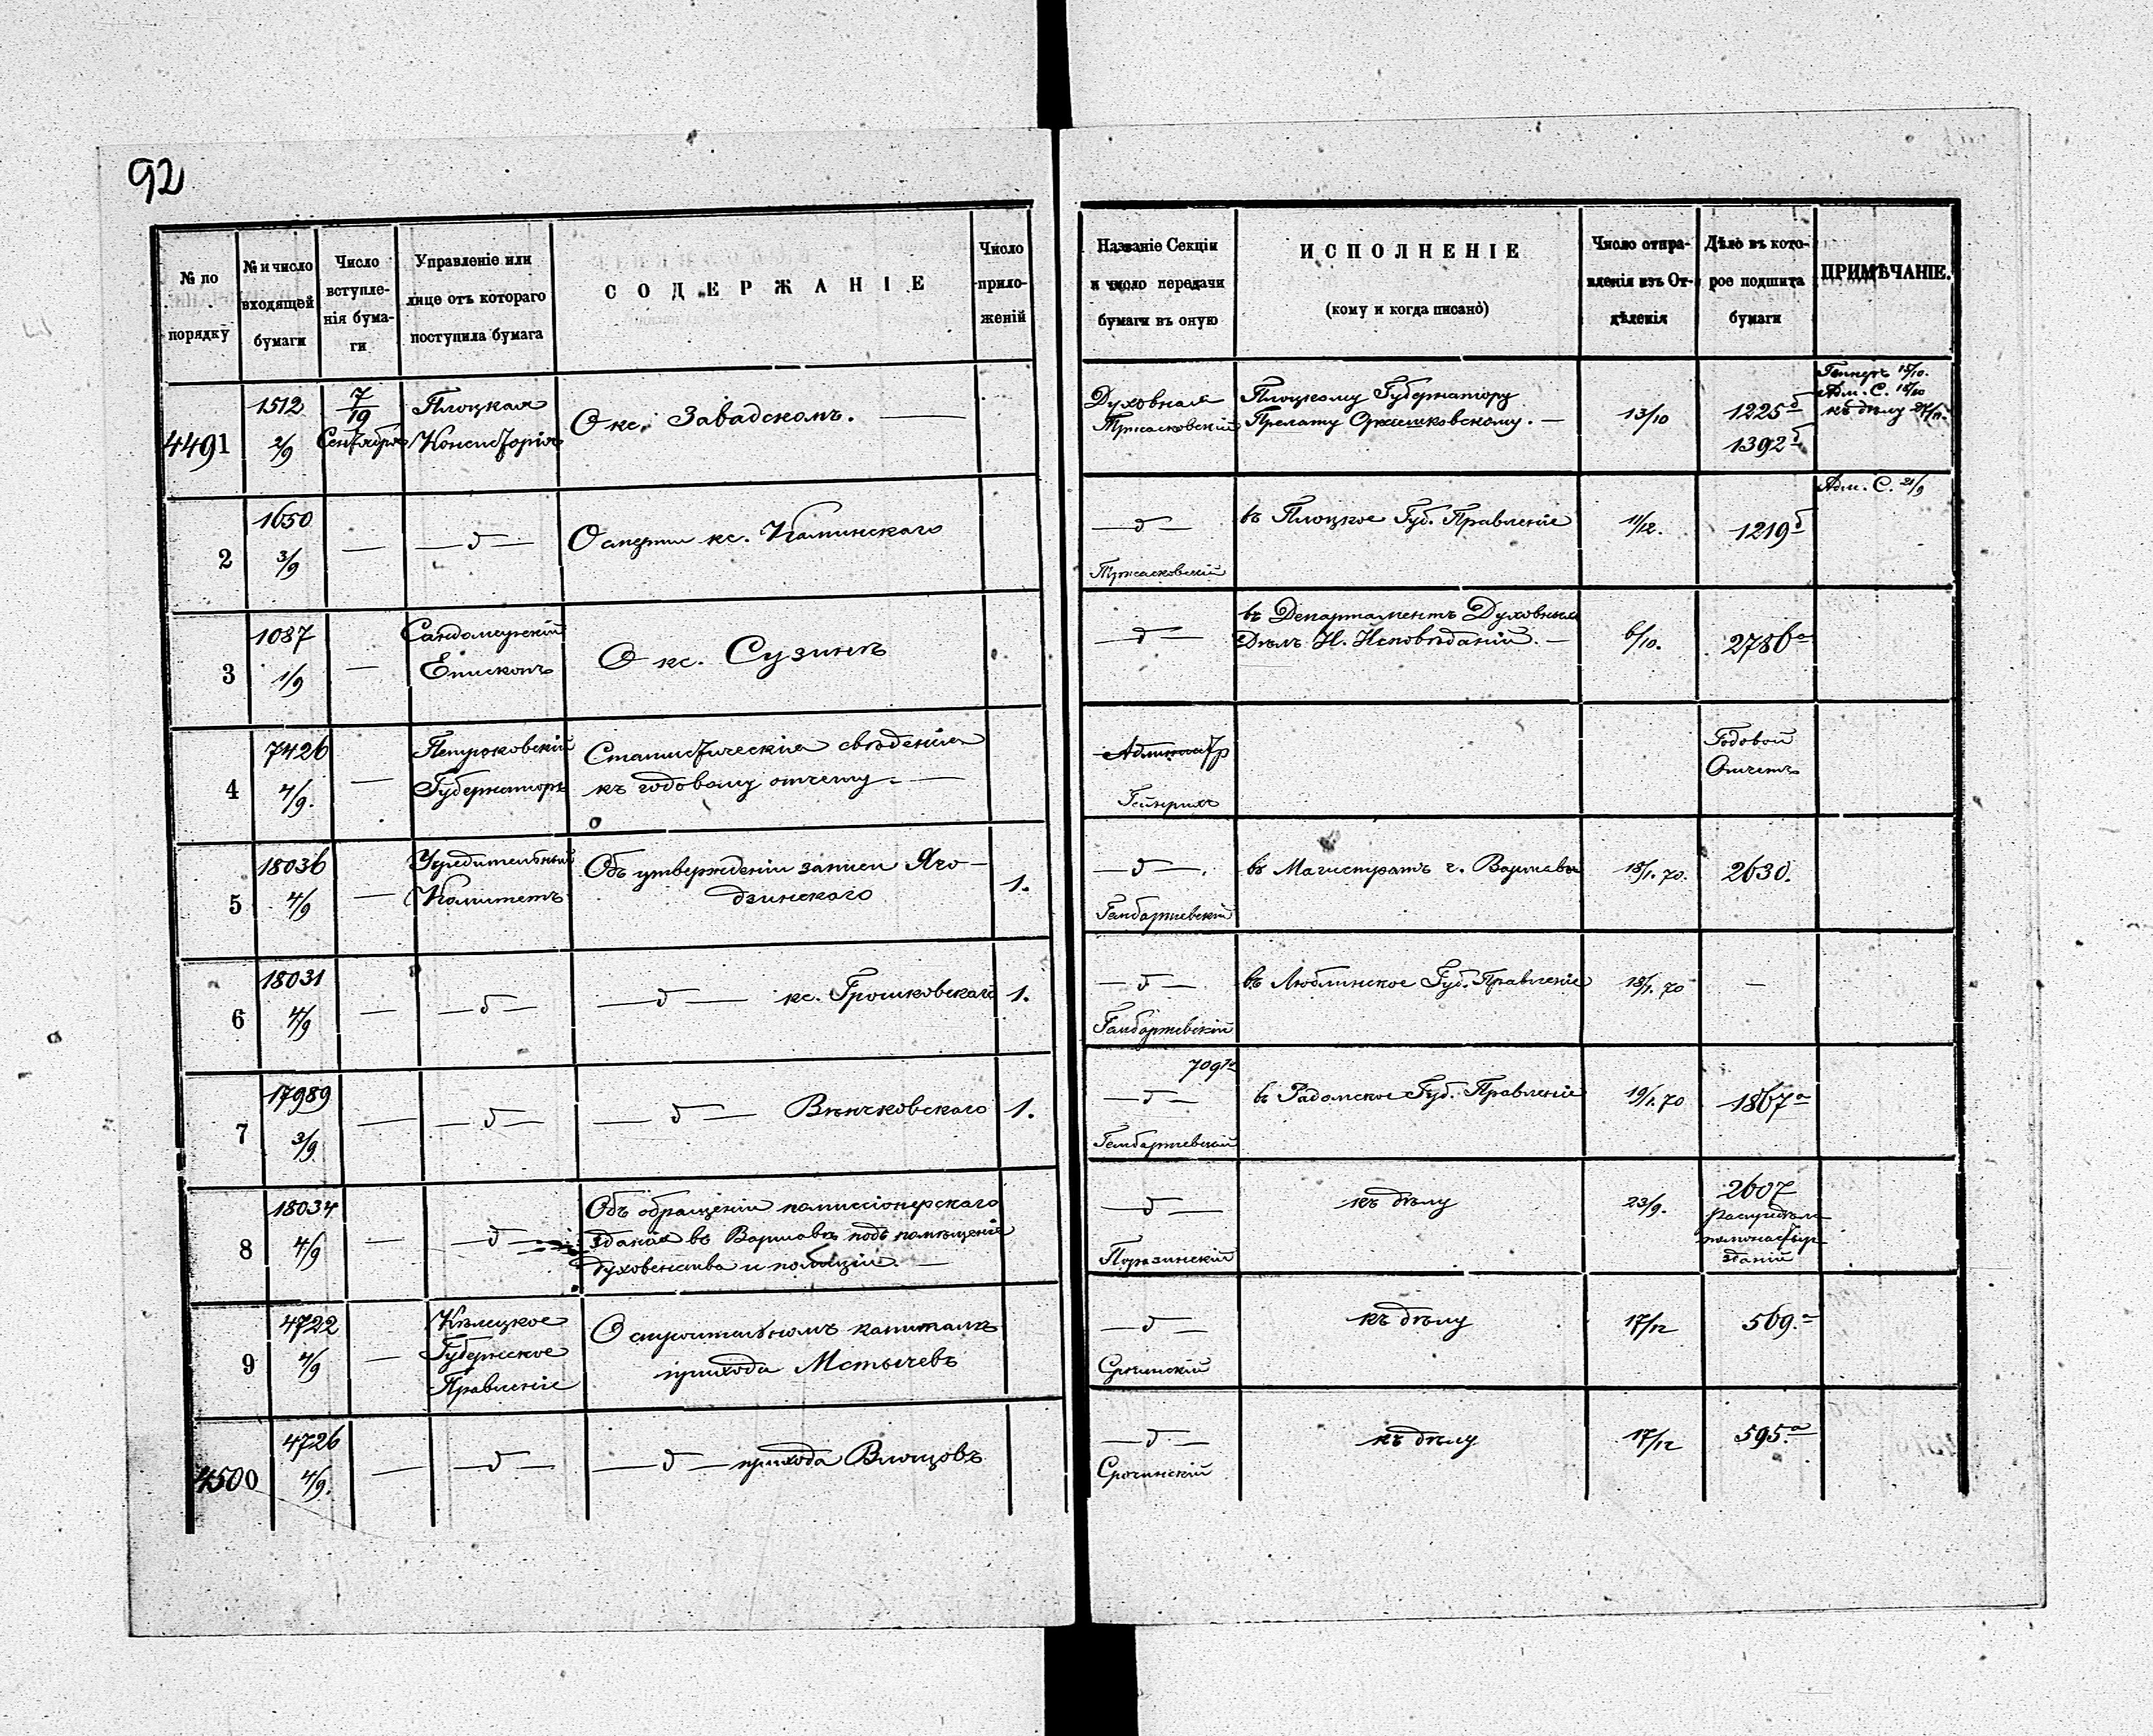 92
№ по порядку
№ и число входящей бумаги
Число вступленія бумаги
Управленіе или лице отъ котораго поступила бумага
СОДЕРЖАНІЕ
Число приложеній
Названіе Секціи и число передачи бумаги въ оную
ИСПОЛНЕНІЕ
(кому и когда писано)
Число отправленія изъ Отдѣленія
Дѣло въ которое подшита бумаги
ПРИМѢЧАНІЕ.
4491
1512
2/9
7/19
Сентября
Плоцкая
Консисторія
О кс. Завадскомъ. —
Духовная
Плоцкому Губернатору
Прелату
13/10
1225б
1392б
15/10.
Адм. С. 18/10
къ дѣлу
2
1650
3/9
—
— д —
О смерти кс. Каминскаго
— д —
въ Плоцкое Губ. Правленіе
11/12.
1219б
Адм. С. 21/9
3
1087
1/9
—
Сандомирскій
Епископъ
О кс. Сузинѣ
— д —
въ Департаментъ Духовныхъ
Дѣлъ И. Исповѣданій. —
6/10.
2786а
4
7426
4/9.
—
Петроковскій
Губернаторъ
Статистическія свѣденія
къ годовому отчету. —
Гейнрихъ
Годовой
Отчетъ
5
18036
4/9
—
Учредительный
Комитетъ
Объ утвержденіи записи Яго-
дзинскаго
1.
— д —.
въ Магистратъ г. Варшавы
18/1. 70.
2630.
6
18031
4/9
—
— д —
— д — кс. Грошковскаго
1.
— д —
въ Люблинское Губ. Правленіе
18/1. 70
—
7
17989
3/9
—
— д —
— д — Вѣнчковскаго
1.
— д —
въ Радомское Губ. Правленіе
19/1. 70
1867а
8
18034
4/9
—
— д —
Объ обращеніи комиссіонерскаго
зданія въ Варшавѣ подъ помѣщеніе
духовенства и полиціи. —
— д —
къ дѣлу
23/9.
2607
зданій
9
4722
4/9
—
Кѣлецкое
Губернское
Правленіе
О строительномъ капиталѣ
прихода Мстычевъ
— д —
Срочинскій
къ дѣлу
17/12
569.а
4500
4726
4/9.
—
— д —
— д — прихода Влощовъ
— д —
Срочинскій
къ дѣлу
17/12
595.а